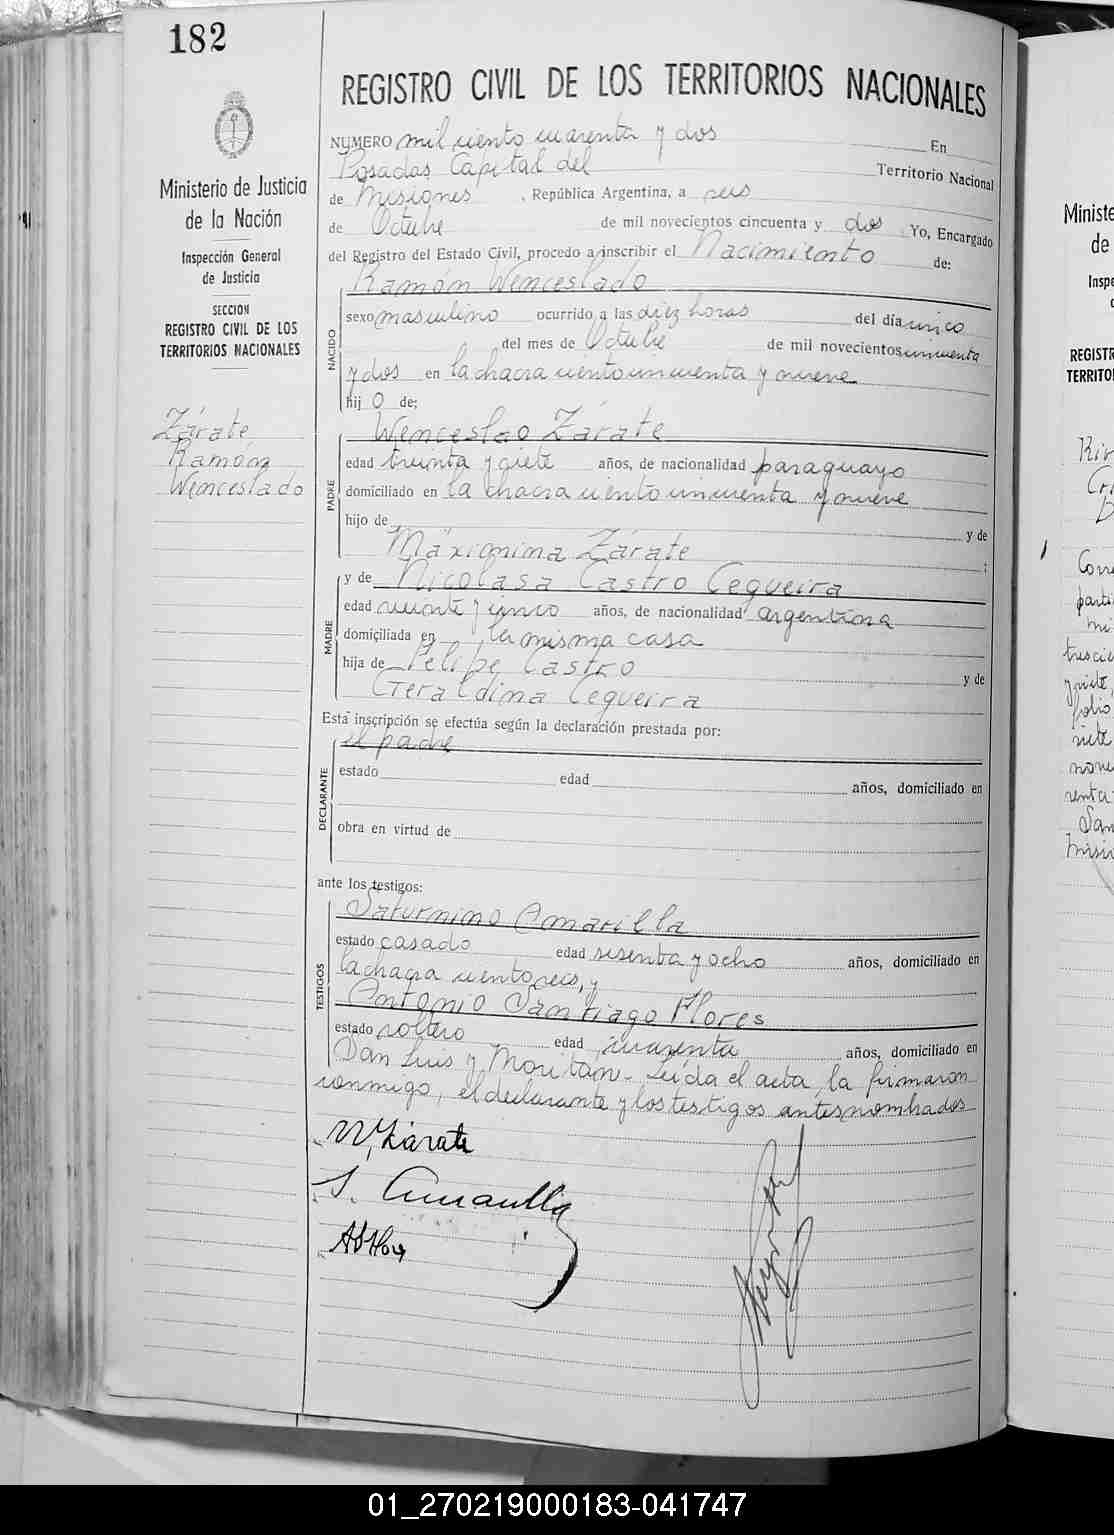 182
Ministerio de Justicia
de la Nación
Inspección General
de Justicia
SECCION
REGISTRO CIVIL DE LOS
TERRITORIOS NACIONALES
Zárate
Ramón
Wenceslado
REGISTRO CIVIL DE LOS TERRITORIOS NACIONALES
NUMERO mil ciento cuarenta y dos En
Posadas Capital del Territorio Nacional
de Misiones , República Argentina, a seis
de Octubre de mil novecientos cincuenta y dos Yo, Encargado
del Registro del Estado Civil, procedo a inscribir el Nacimiento de:
Ramón Wenceslado
NACIDO
sexo masculino ocurrido a las diez horas del día cinco
del mes de Octubre de mil novecientos cincuenta
y dos en la chacra ciento cincuenta y nueve
hij o de:
Wenceslao Zárate
PADRE
edad treinta y siete años, de nacionalidad paraguayo
domiciliado en la chacra ciento cincuenta y nueve
hijo de y de
Máximina Zárate ;
y de Nicolasa Castro Cequeira
MADRE
edad veinte y cinco años, de nacionalidad argentina
domiciliada en la misma casa
hija de Felipe Castro y de
Geraldina Cequeira
Esta inscripción se efectúa según la declaración prestada por:
el padre
DECLARANTE
estado edad años, domiciliado en
obra en virtud de
ante los testigos:
Saturnino Amarilla
TESTIGOS
estado casado edad sesenta y ocho años, domiciliado en
la chacra ciento seis, y
Antonio Santiago Flores
estado soltero edad cuarenta años, domiciliado en
San Luis y Moritan- Leída el acta, la firmaron
conmigo, el declarante y los testigos antes nombrados
W, Zárate
S. Amarilla
Ministe
de
Inspe
REGISTR
TERRITO
01_270219000183-041747